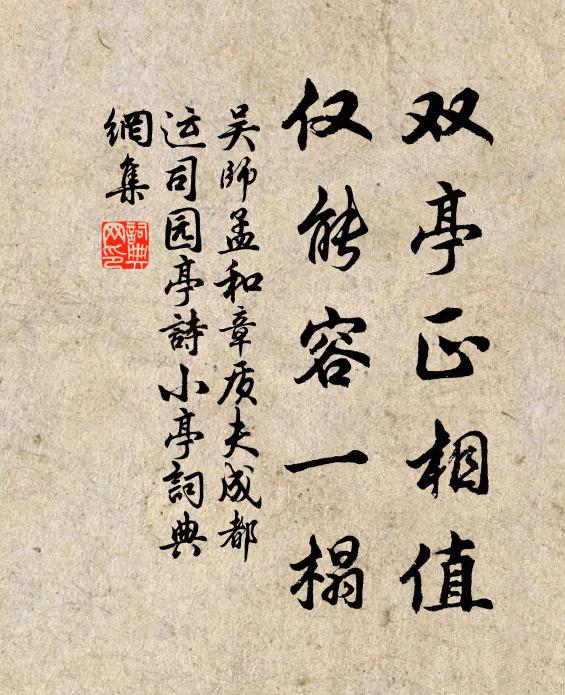 双亭正相值
仅能容一榻
吴師孟和章质夫成都
运司园亭詩小亭詞典
網集
詞典
网印